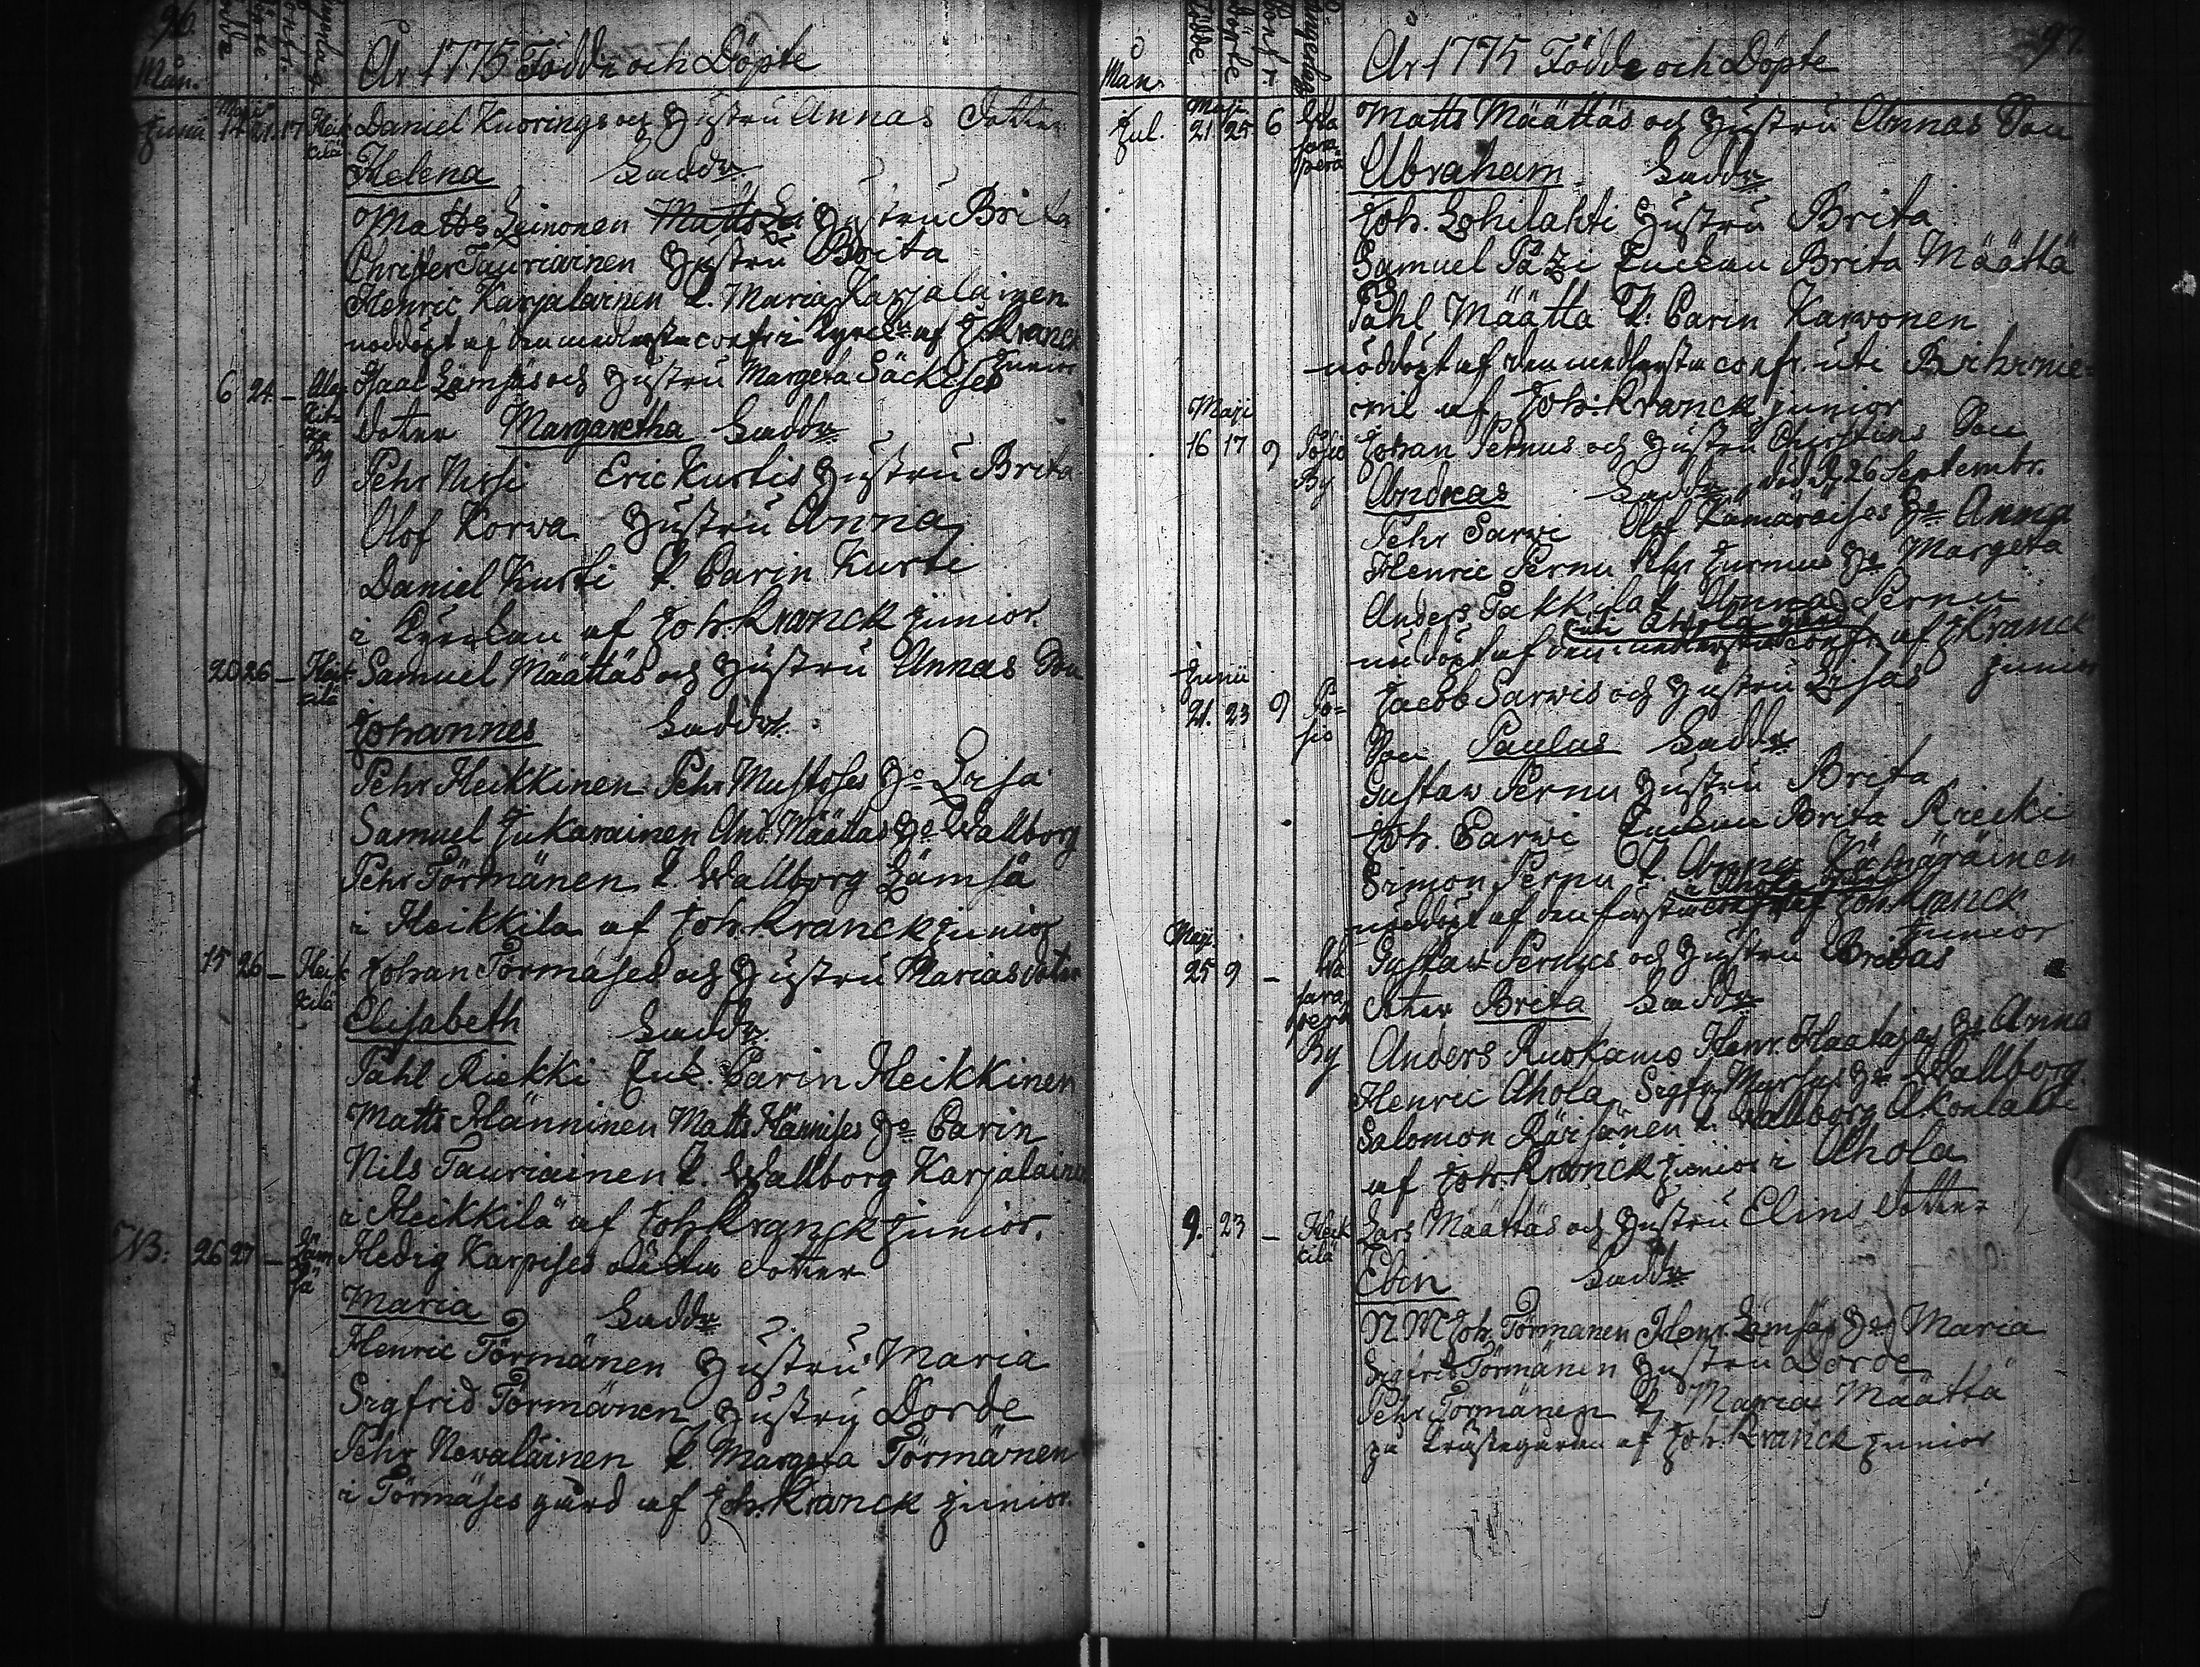 96.
Mån. Födde Döpte
År 1775 Födde och Döpte
Junii Maji 14 21. 17 Heikkilä Daniel Kuorings och Hustru Annas Dotter
Helena Faddr.
Matts Leinonen Hustru Brita
Christer Tauriainen Hustru Brita
Henric Karjalainen P. Maria Karjalainen
nöddöpt af den medlersta conf. i Kyrck. af J. Kranck
Junior
6 24 – Isaac Lämsäs och Hustru Margeta Säckises
By dotter Margaretha Faddr.
Pehr Nissi Eric Kurtis Hustru Brita
Olof Korwa Hustru Anna
Daniel Kurti P. Carin Kurti
i Kyrckan af Joh. Kranck junior.
20 26 – Heikkilä Samuel Määttäs och Hustru Annas Son
Johannes Faddr.
Pehr Heikkinen Pehr Mustoses H:o Lisa
Samuel Jukarainen And. Määttas H:o Wallborg
Pehr Törmänen P. Wallborg Lämsä
i Heikkilä af Joh. Kranck junior
15 26 – Heikkilä Johan Törmäses och Hustru Marias dotter
Elisabeth Faddr.
Påhl Riekki Enk. Carin Heikkinen
Matts Hänninen Matts Hännises H:o Carin
Nils Tauriainen P. Wallborg Karjalainen
i Heikkilä af Joh. Kranck junior.
NB: 26 27 – Lämsä Hedig Karpises oächta dotter
Maria Faddr.
Henric Törmänen Hustru Maria
Sigfrid Törmänen Hustru Dorde
Pehr Newalainen P. Margeta Törmänen
i Törmäses gård af Joh. Kranck junior.
97
Mån. Födde Döpte
År 1775 Födde och Döpte
Jul. Maji 21 25 6 Wasaraperä Matts Määttäs och Hustru Annas Son
Abraham Faddr.
Joh. Lohilahti Hustru Brita
Samuel Päzi Enckan Brita Määttä
Påhl Määttä P. Carin Karwonen
nöddöpt af den medlersta conf. uti
af Joh. Kranck junior
Maji
16 17 9 Posio By Johan Pernus och Hustru Christins Son
Andreas Faddr. död d. 26 Septembr.
Pehr Sarwi Olof Kämäräises H:o Anna
Henric Pernu Pehr Jurmus H:o Margeta
Anders Takkila P. Anna Pernu
uti Ahola gård
nöddöpt af den medlersta conf. af J. Kranck
junior
Junii
21. 23 9 Posio Jacob Sarwis och Hustru Lisas
Son Paulus Faddr.
Gustaw Pernu Hustru Brita
Joh. Sarwi Enckan Brita Riecki
Simon Pernu P. Anna Kämäräinen
i Ahola gård
nöddöpt af den första conf. af Joh. Kranck
junior
Maji
25 9 – Wasaraperä By Gustaw Pernus och Hustru Britas
dotter Brita Faddr.
Anders Ruokamo Henr. Haatajas H:o Anna
Henric Ahola Sigfr. H:o Wallborg
Salomon Räisänen P. Wallborg Akonlahti
af Joh. Kranck junior i Ahola
9. 23 – Heikkilä Lars Määttäs och Hustru Elins dotter
Elin Faddr.
N M Joh. Törmanen Henr. Lämsäs H:o Maria
Sigfrid Törmänen Hustru Dorde
Pehr Törmänen P. Maria Määttä
på Prästegården af Joh. Kranck junior